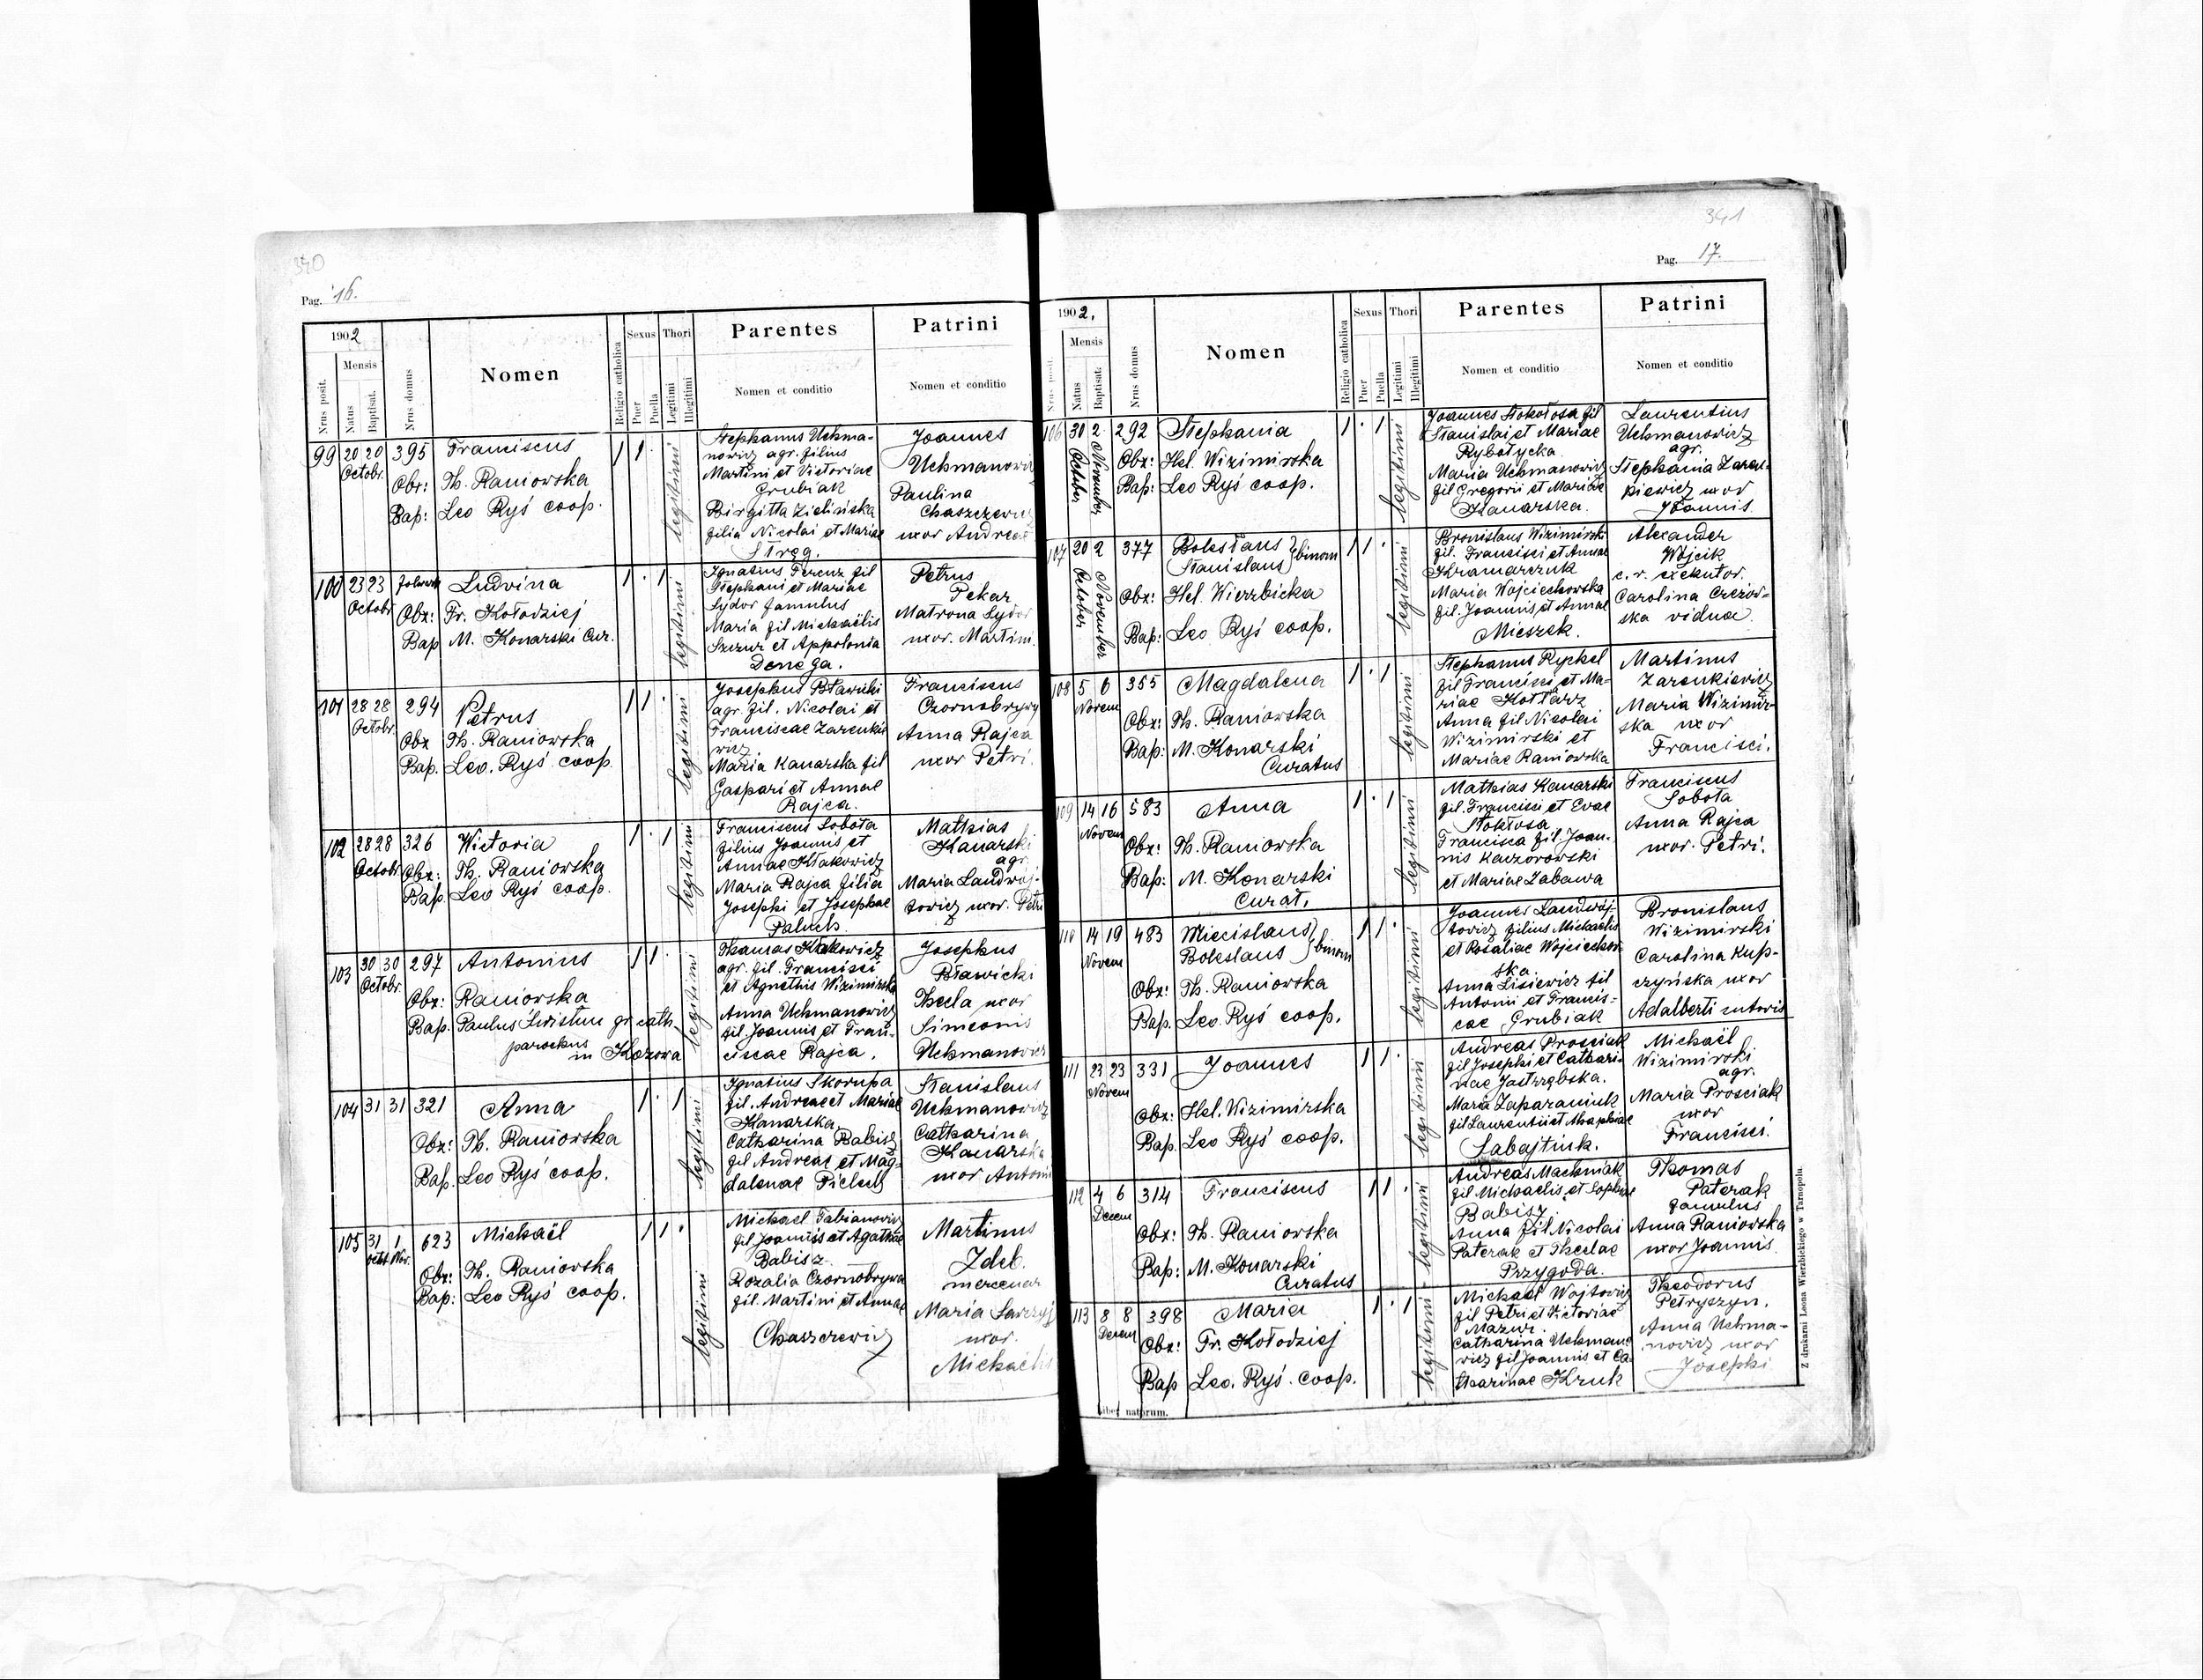 340
Pag. 16.
1902
Nrus posit.
Mensis
Natus
Baptisat.
Nrus domus
Nomen
Religio catholica
Sexus
Puer
Puella
Thori
Legitimi
Illegitimi
Parentes
Nomen et conditio
Patrini
Nomen et conditio
99 20 20 395 Franciscus
Octobr.
Obx: Th. Raniowska
Bap: Leo Ryś coop.
legitimi
Stephanus Uchma-
nowicz agr. filius
Martini et Victoriae
Grubiak
Birgitta Zielińska
filia Nicolai et Mariae
Streg.
Joannes
Uchmanowicz
Paulina
Chaszczewicz
uxor Andreae
100 23 23 Ludvina
Octobr
Obx: Fr. Kołodziej
Bap M. Konarski Cur.
legitimi
Ignatius Ferenz fil
Stephani et Mariae
Sydor famulus
Maria fil Michaëlis
Szczur et Appolonia
Denega.
Petrus
Pekar
Matrona Sydor
uxor. Martini.
101 28 28 294 Petrus
Octobr.
Obx Th. Raniowska
Bap. Leo. Ryś coop
legitimi
Josephus Bławicki
agr. fil. Nicolai et
Franciscae Zarenkie
wicz
Maria Kanarska fil
Gaspari et Annae
Rajca.
Franciscus
Czornobrywy
Anna Rajca
uxor Petri.
102 28 28 326 Wictoria
Octobr Obx: Th. Raniowska
Bap. Leo Ryś coop.
legitimi
Franciscus Sobota
filius Joannis et
Annae Kłakowicz
Maria Rajca filia
Josephi et Josephae
Paluch
Mathias
Kanarski
agr.
Maria Landwoj-
towicz uxor. Petri
103 30 30 297 Antonius
Octobr.
Obx: Raniowska
Bap. Paulus Świstun gr. cath.
parochus
in Kozowa
legitimi
Thomas Kłakowicz
agr. fil. Francisci
et Agnethis Wizimirska
Anna Uchmanowicz
fil. Joannis et Fran-
ciscae Rajca.
Josephus
Bławicki
Thecla uxor
Simeonis
Uchmanowicz
104 31 31 321 Anna
Obx: Th. Raniowska
Bap. Leo Ryś coop.
legitimi
Ignatius Skorupa
fil. Andreae et Mariae
Kanarska.
Catharina Babisz
fil Andreae et Mag-
dalenae Pielech
Stanislaus
Uchmanowicz
Catharina
Kanarska
uxor Antonii
105 31 1 623 Michaël
Octob Nov.
Obx: Th. Raniowska
Bap: Leo Ryś coop.
legitimi
Michael Fabianowicz
fil Joannis et Agathae
Babisz
Rozalia Czornobrywa
fil. Martini et Annae
Chaszczewicz
Martinus
Zdeb.
mercenar
Maria
uxor.
Michaelis
341
Pag. 17.
1902.
Nrus posit.
Mensis
Natus
Baptisat.
Nrus domus
Nomen
Religio catholica
Sexus
Puer
Puella
Thori
Legitimi
Illegitimi
Parentes
Nomen et conditio
Patrini
Nomen et conditio
106 30 2 292 Stephania
October
November
Obx: Hel. Wizimirska
Bap: Leo Ryś coop.
legitimi
Joannes Stokołosa fil
Stanislai et Mariae
Rybotycka
Maria Uchmanowicz
fil Gregorii et Mariae
Kanarska.
Laurentius
Uchmanowicz
agr.
Stephania Zaren-
kiewicz uxor
Joannis.
107 20 2 377 Bolesłaus
Stanislaus } binom
October
November
Obx: Hel. Wierzbicka
Bap: Leo Ryś coop.
legitimi
Bronislaus Wizimirski
fil. Francisci et Annae
Kramarczuk
Maria Wojciechowska
fil. Joannis et Annae
Mieszek.
Alexander
Wójcik
c. r. exekutor.
Carolina Crezow-
ska vidua.
108 5 6 355 Magdalena
Novem
Obx: Th. Raniowska
Bap: M. Konarski
Curatus
legitimi
Stephanus Rychel
fil Francisci et Ma-
riae Kotlarz
Anna fil Nicolai
Wizimirski et
Mariae Raniowska
Martinus
Zarenkiewicz
Maria Wizimir-
ska uxor
Francisci.
109 14 16 583 Anna
Novem
Obx: Th. Raniowska
Bap: M. Konarski
Curat.
legitimi
Mathias Kanarski
fil. Francisci et Evae
Stokłosa
Francisca fil Joan-
nis Kaczorowski
et Mariae Zabawa
Franciscus
Sobota
Anna Rajca
uxor. Petri.
110 14 19 483 Miecislaus
Boleslaus } binom
Novem
Obx: Th. Raniowska
Bap. Leo Ryś coop.
legitimi
Joannes Landwoj-
towicz filius Michaelis
et Rosaliae Wojciechow
ska.
Anna Lisiewicz fil
Antoni et Francis-
cae Grubiak
Bronislaus
Wizimirski
Carolina Kup-
czyńska uxor
Adalberti sutoris
111 23 23 331 Joannes
Novem
Obx: Hel. Wizimirska
Bap: Leo Ryś coop.
legitimi
Andreas Prosciak
fil Josephi et Cathari-
nae Jastrzębska.
Maria Zaparaniuk
fil Laurentii et Agaphiae
Labajtiuk.
Michaël
Wizimirski
agr.
Maria Prosciak
uxor
Francisci.
112 4 6 314 Franciscus
Decem
Obx: Th. Raniowska
Bap: M. Konarski
Curatus
legitimi
Andreas Machniak
fil Michaelis et Sophiae
Babisz.
Anna fil Nicolai
Paterak et Theclae
Przygoda.
Thomas
Paterak
famulus
Anna Raniowska
uxor Joannis.
113 8 8 398 Maria
Decem
Obx: Fr. Kołodziej
Bap Leo. Ryś. coop.
legitimi
Michael Wojtowicz
fil Petri et Victoriae
Mazur.
Catharina Uchmano
wicz fil Joannis et Ca-
tharinae Kruk
Theodorus
Petryszyn.
Anna Uchma-
nowicz uxor
Josephi
Liber natorum.
Z drukarni Leona Wierzbickiego w Tarnopolu.